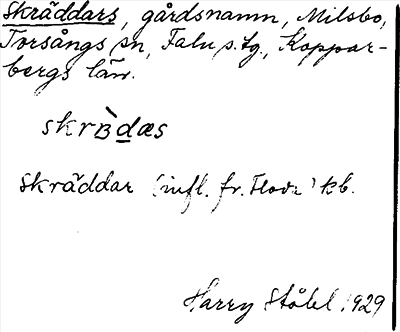 Skräddars, gårdsnamn, Milsbo,
Torsångs sn, Falu s.lg., Koppar-
bergs län.
skrB̀d̲æs
Skräddar (infl. fr. Flod) kb.
Harry Ståhl 1929